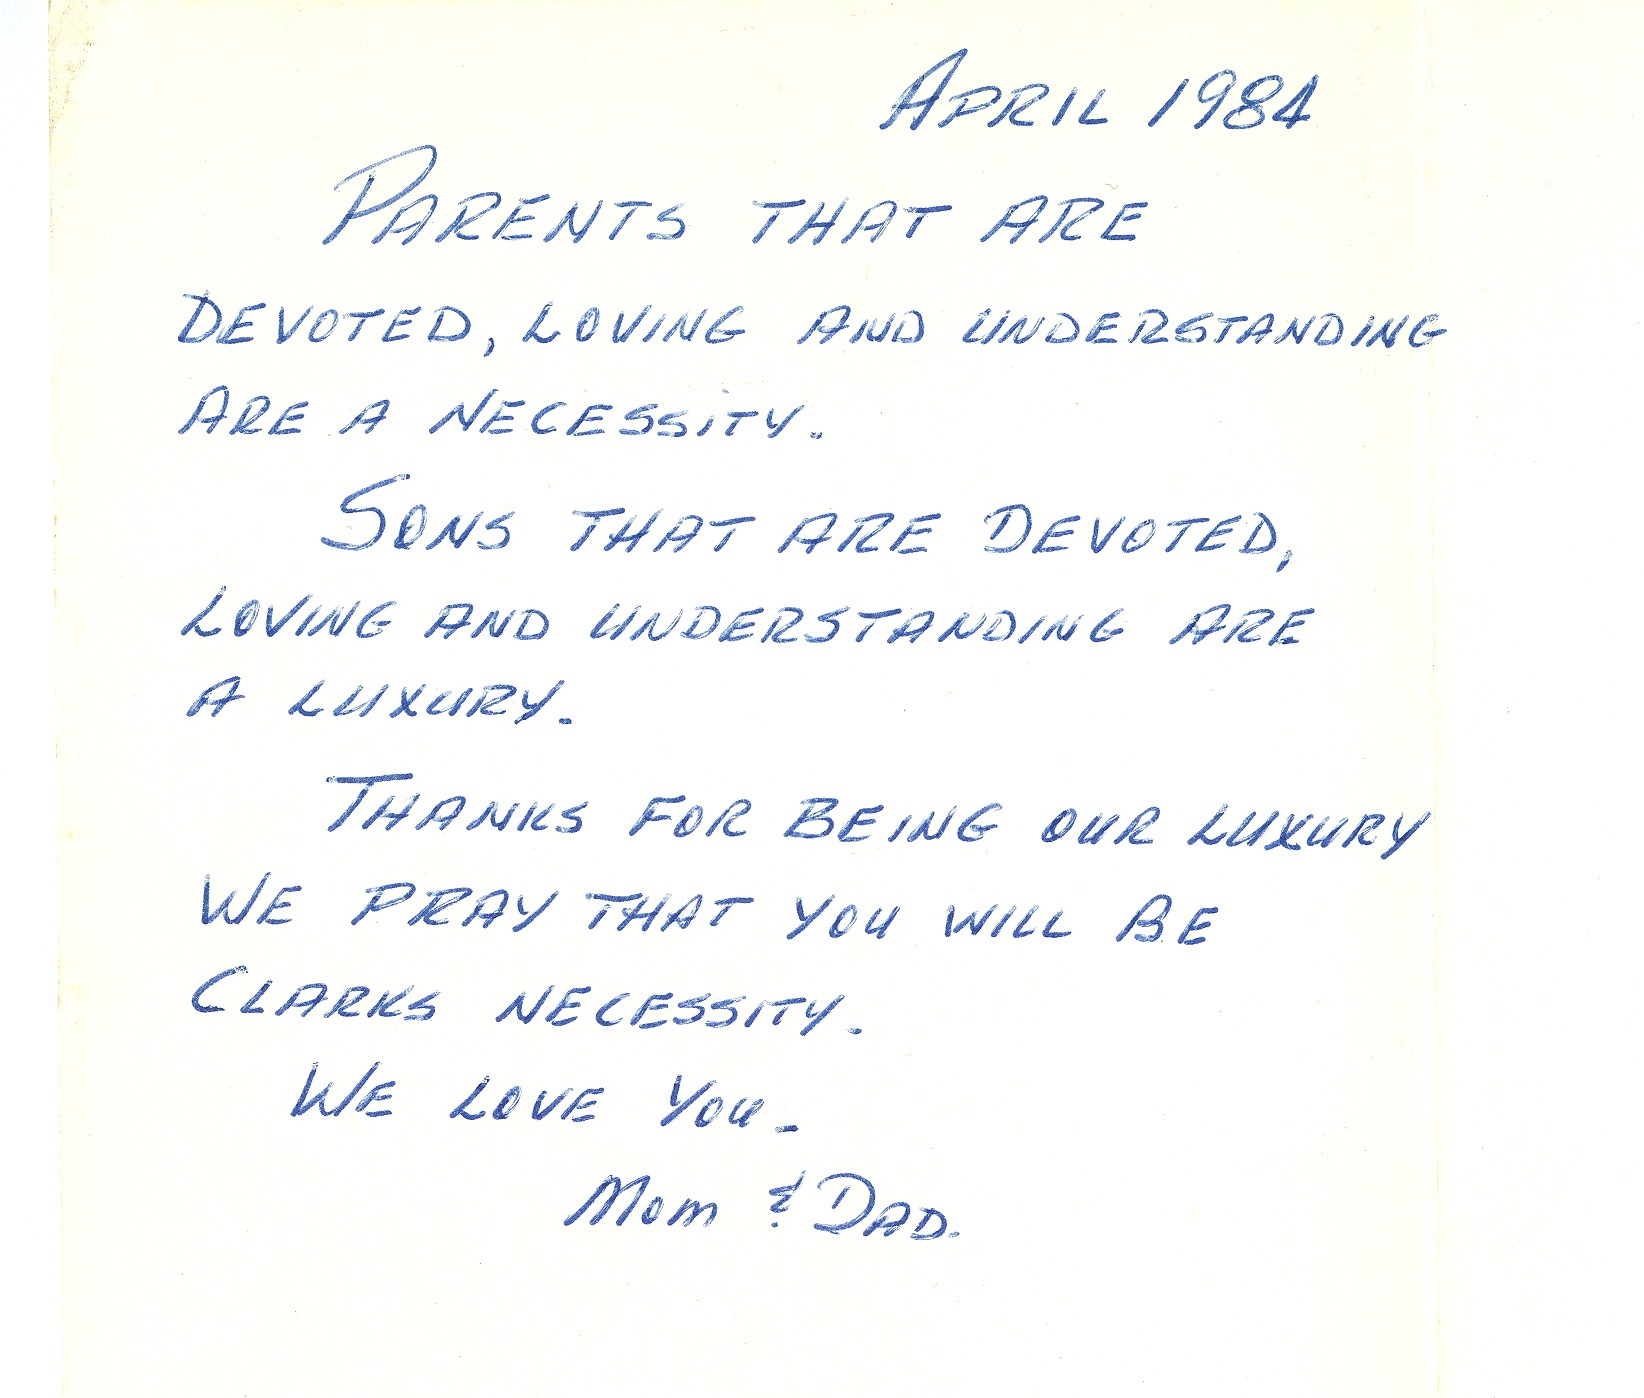 APRIL 1984
PARENTS THAT ARE
DEVOTED, LOVING AND UNDERSTANDING
ARE A NECESSITY.
SONS THAT ARE DEVOTED,
LOVING AND UNDERSTANDING ARE
A LUXURY.
THANKS FOR BEING OUR LUXURY
WE PRAY THAT YOU WILL BE
CLARKS NECESSITY.
WE LOVE YOU-
MOM & DAD.